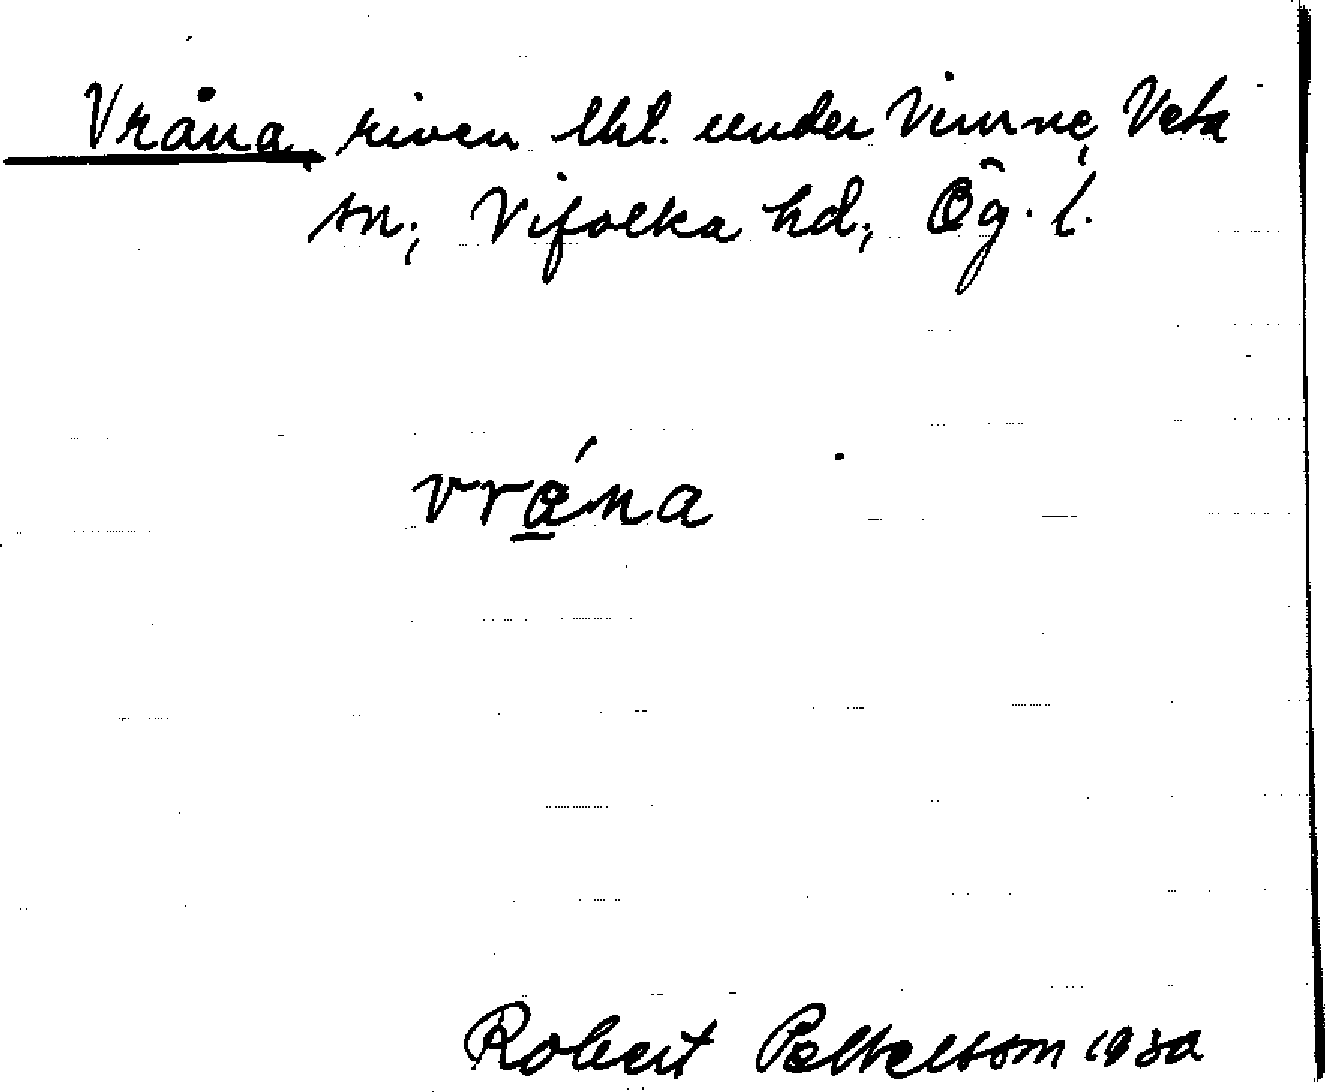 Vråna, riven lht. under Vinne, Veta
sn; Vifolka hd; Ög. l.
vrána
Robert Pettersson 1930